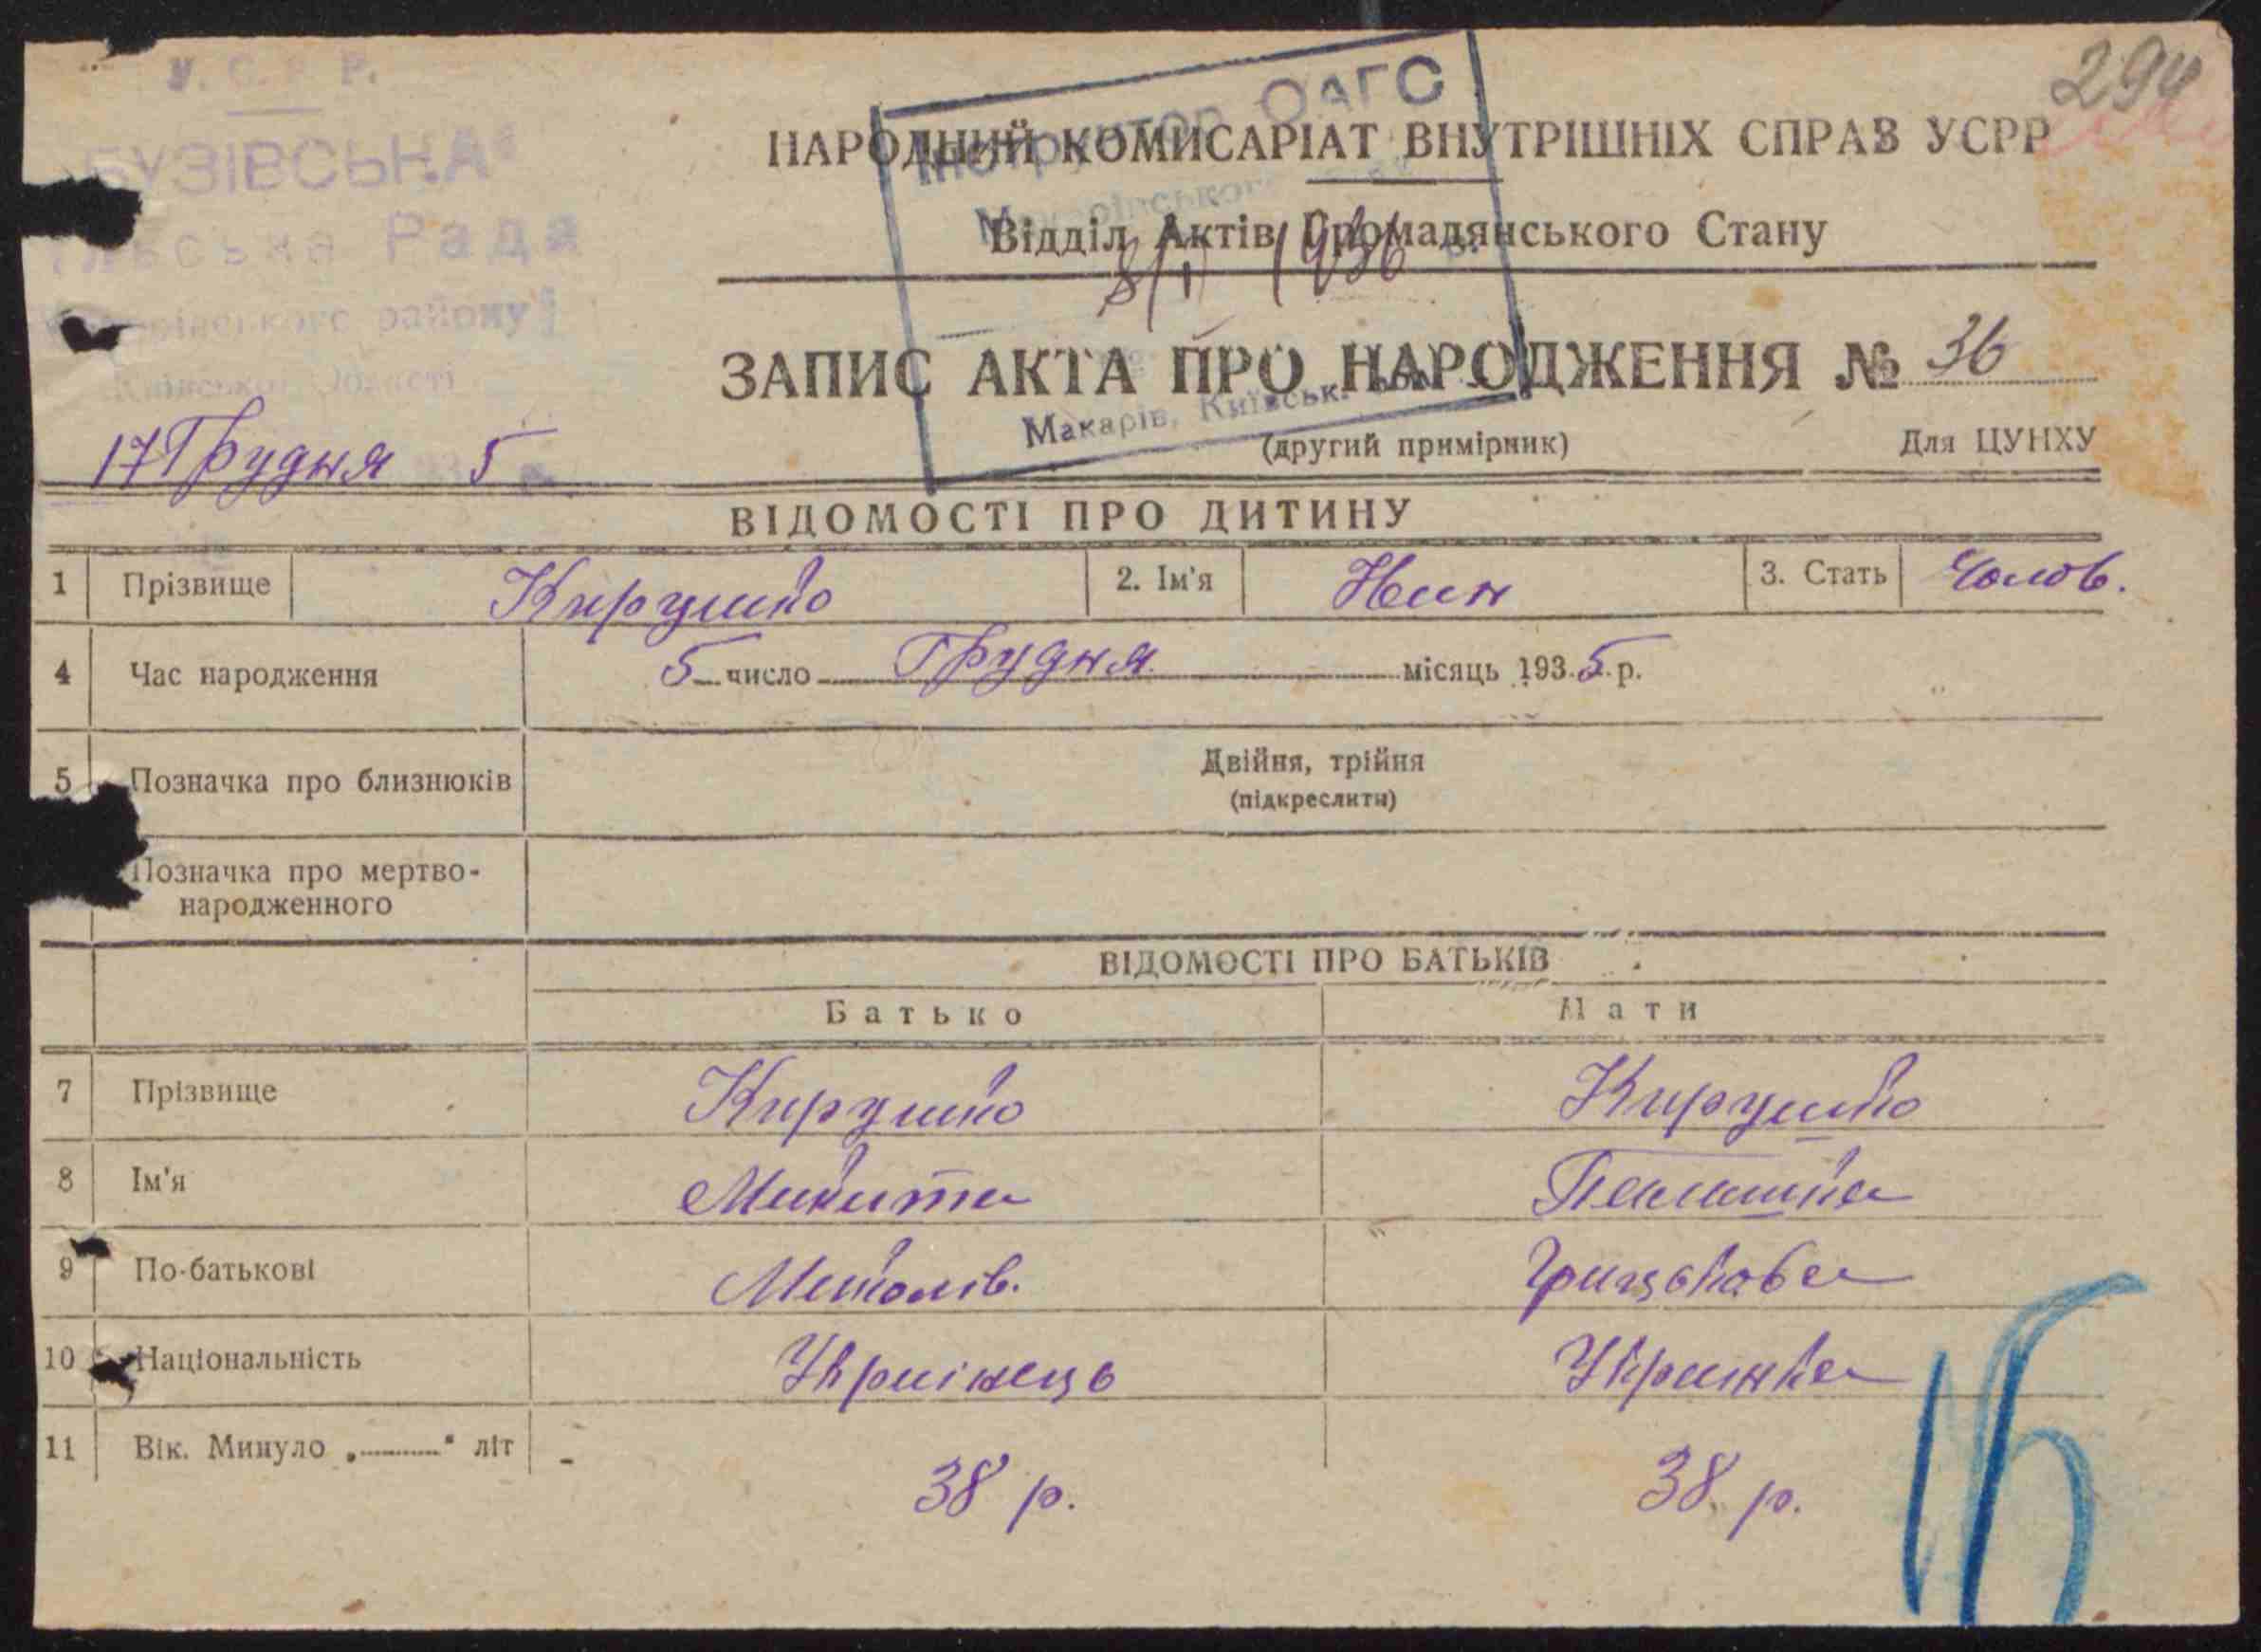 У. С. Р. Р.
БУЗІВСЬКА
Рада
району
Київської Області
17 Грудня 5
294
Інструктор ОАГС
8/I 1936
Макарів, Київськ.
НАРОДНИЙ КОМИСАРІАТ ВНУТРІШНІХ СПРАВ УСРР
Відділ Актів Громадянського Стану
ЗАПИС АКТА ПРО НАРОДЖЕННЯ № 36
(другий примірник) Для ЦУНХУ
ВІДОМОСТІ ПРО ДИТИНУ
1 Прізвище Кирушко 2. Ім'я 3. Стать Чолов.
4 Час народження 5 число Грудня місяць 1935 р.
5 Позначка про близнюків Двійня, трійня
(підкреслити)
Позначка про мертво-
народженного
ВІДОМОСТІ ПРО БАТЬКІВ
Батько Мати
7 Прізвище Кирушко Кирушко
8 Ім'я Микита
9 По-батькові
10 Національність Українець Українка
11 Вік. Минуло „ “ літ - 38 р. 38 р.